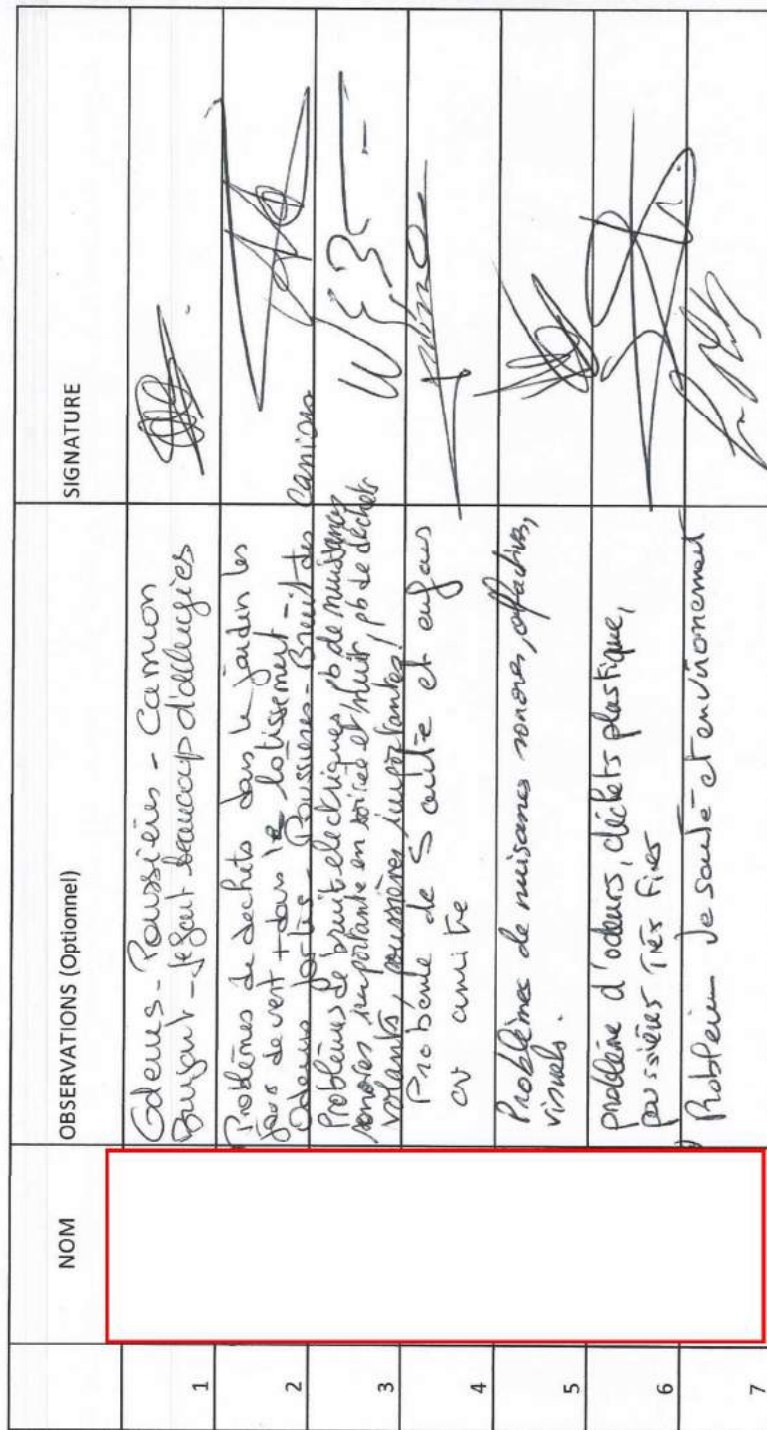 NOM OBSERVATIONS (Optionnel) SIGNATURE
1
Odeurs - Poussières - Camion
Bruyant - beaucoup d'allergies
2
Problèmes de dechets dans le jardin les
jours de vent + dans le lotissement
Odeurs fortes - Poussières - Bruit des Camions
3
Problèmes de bruit electriques, pb de nuisances
sonores importante en soirée et nuit, pb de déchets
volants, poussières importantes!
4
Probeme de Santé et enfans
5
Problèmes de nuisances sonores, olfactives,
visuels.
6
problème d'odeurs, déchets plastique,
poussières Très Fines
7
Problem de santé et environement